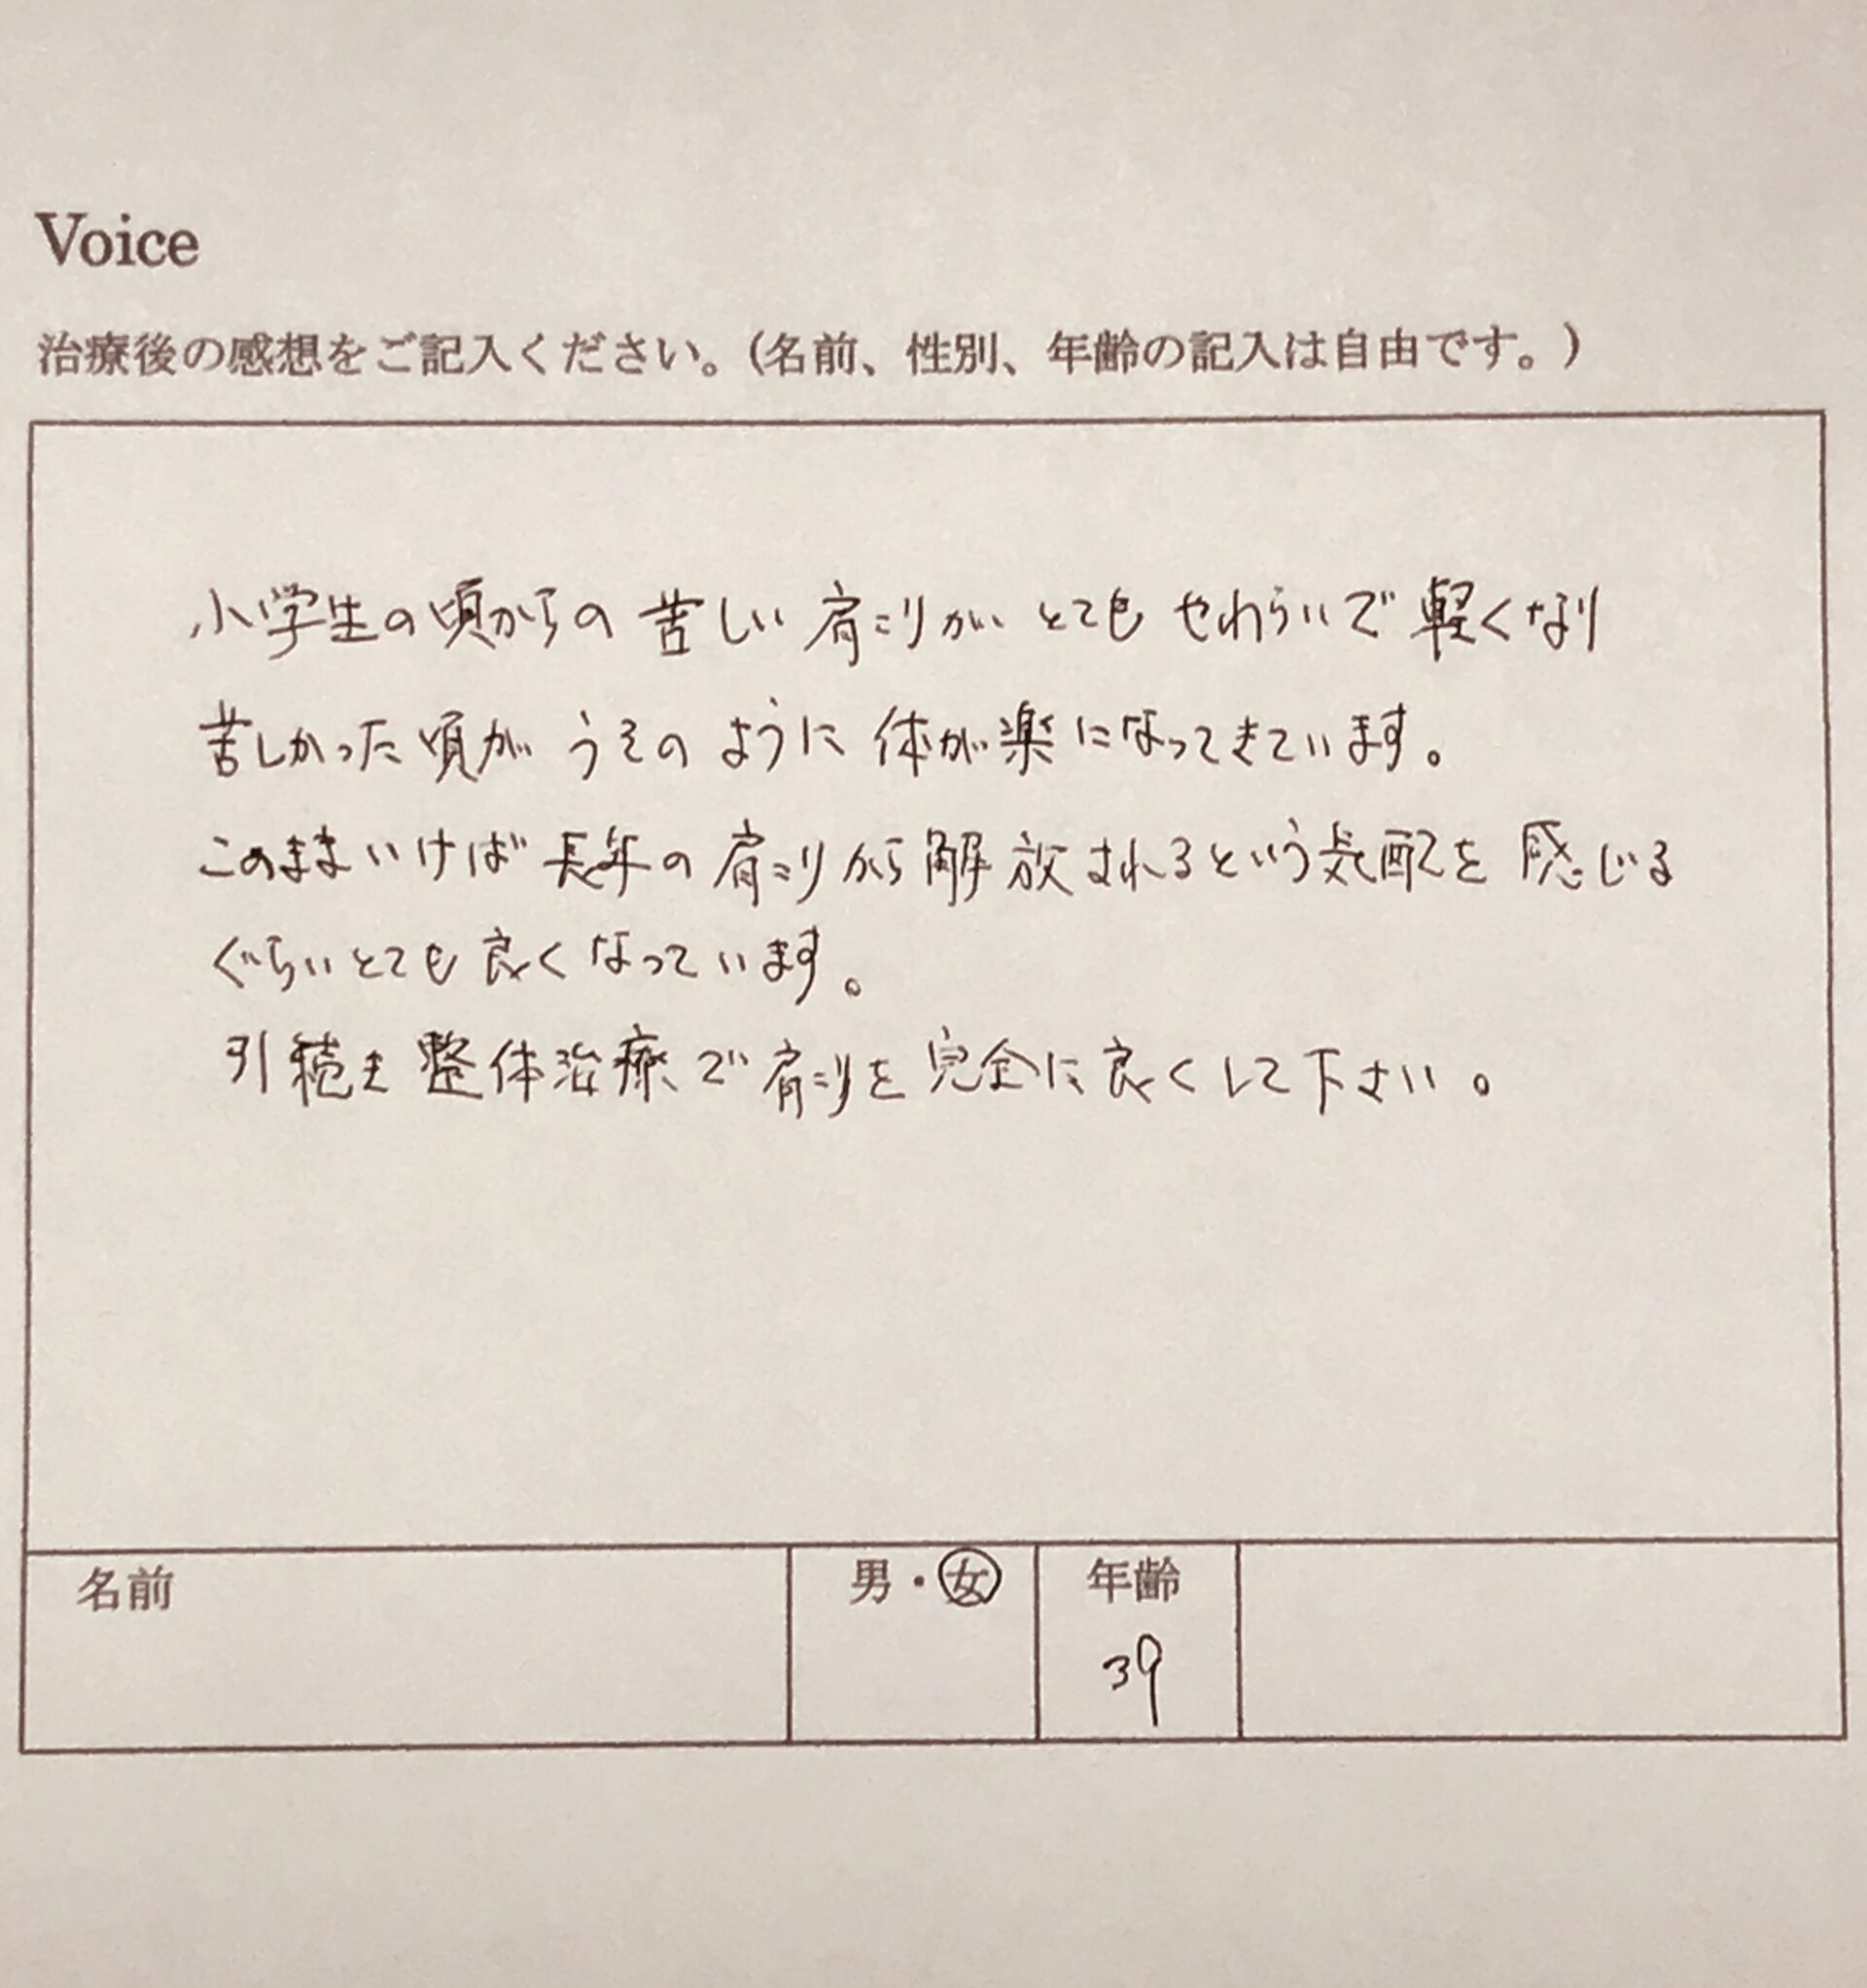 Voice
治療後の感想をご記入ください。（名前、性別、年齢の記入は自由です。）
小学生の頃からの苦しい肩こりがとてもやわらいで軽くなり
苦しかった頃がうそのように体が楽になってきています。
このままいけば長年の肩こりから解放されるという気配を感じる
ぐらいとても良くなっています。
引続き整体治療で肩こりを完全に良くして下さい。
名前 男・女 年齢
39